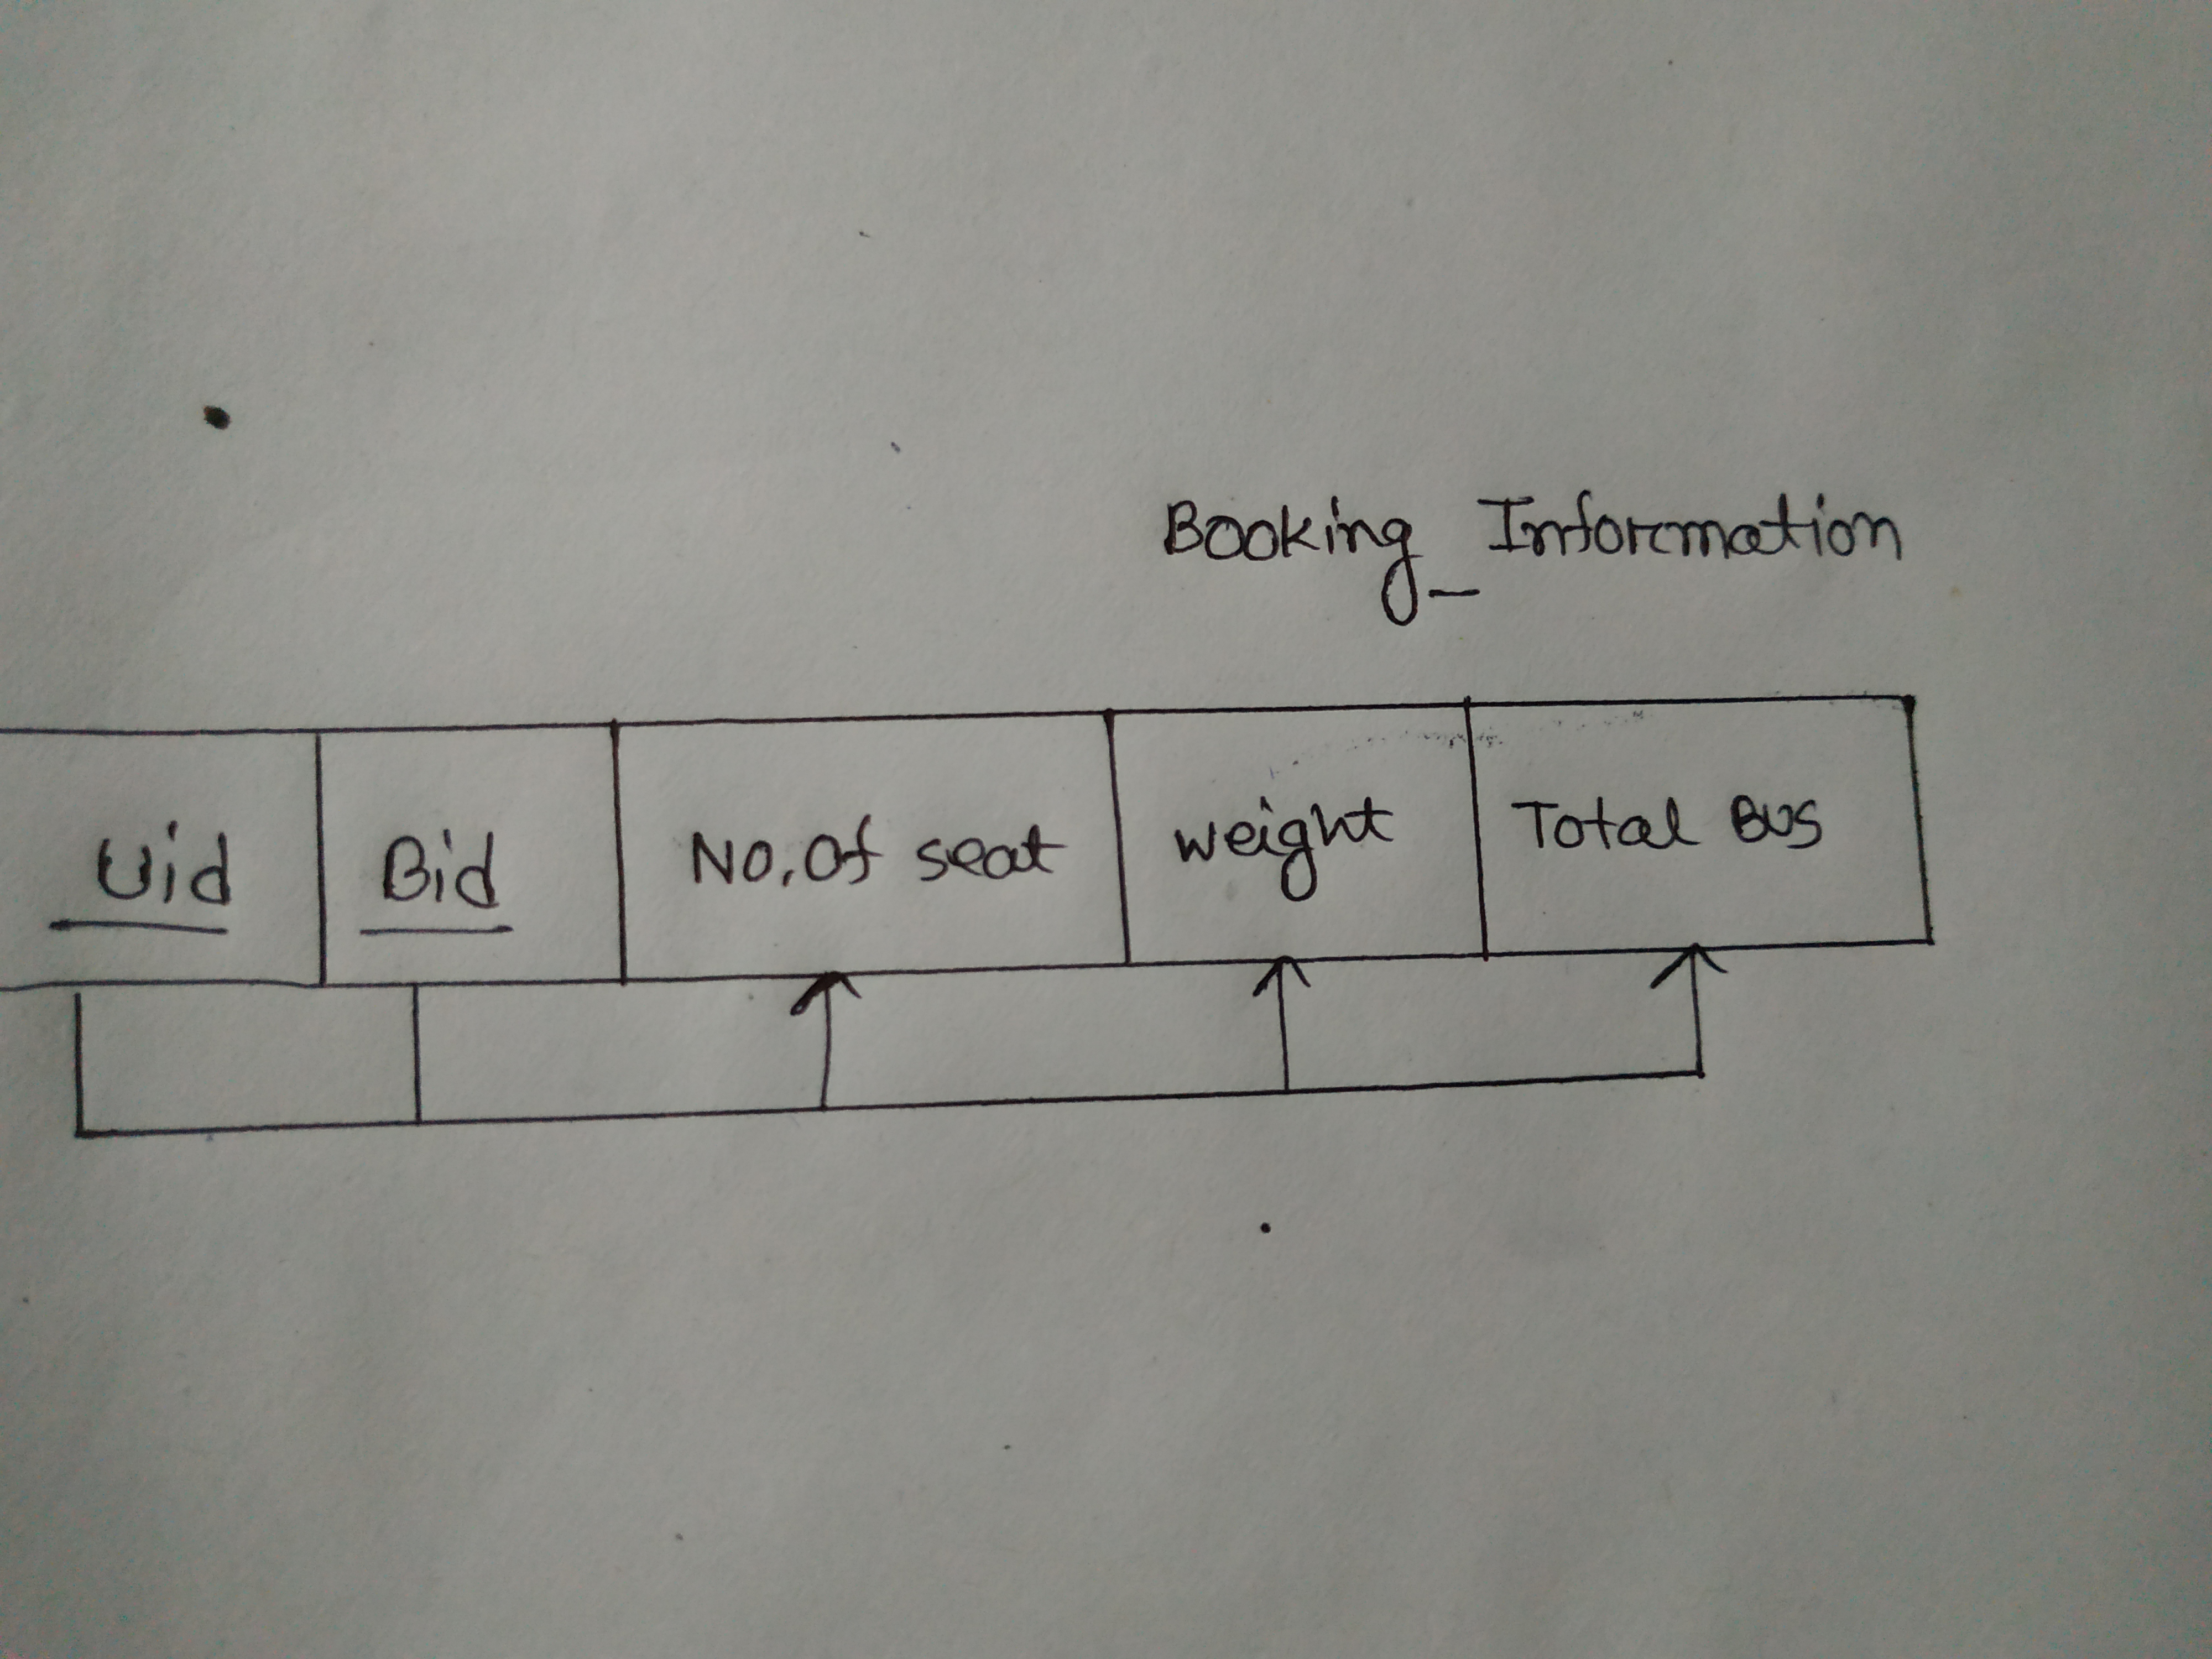 Booking_Information
Uid Bid No.Of seat weight Total Bus